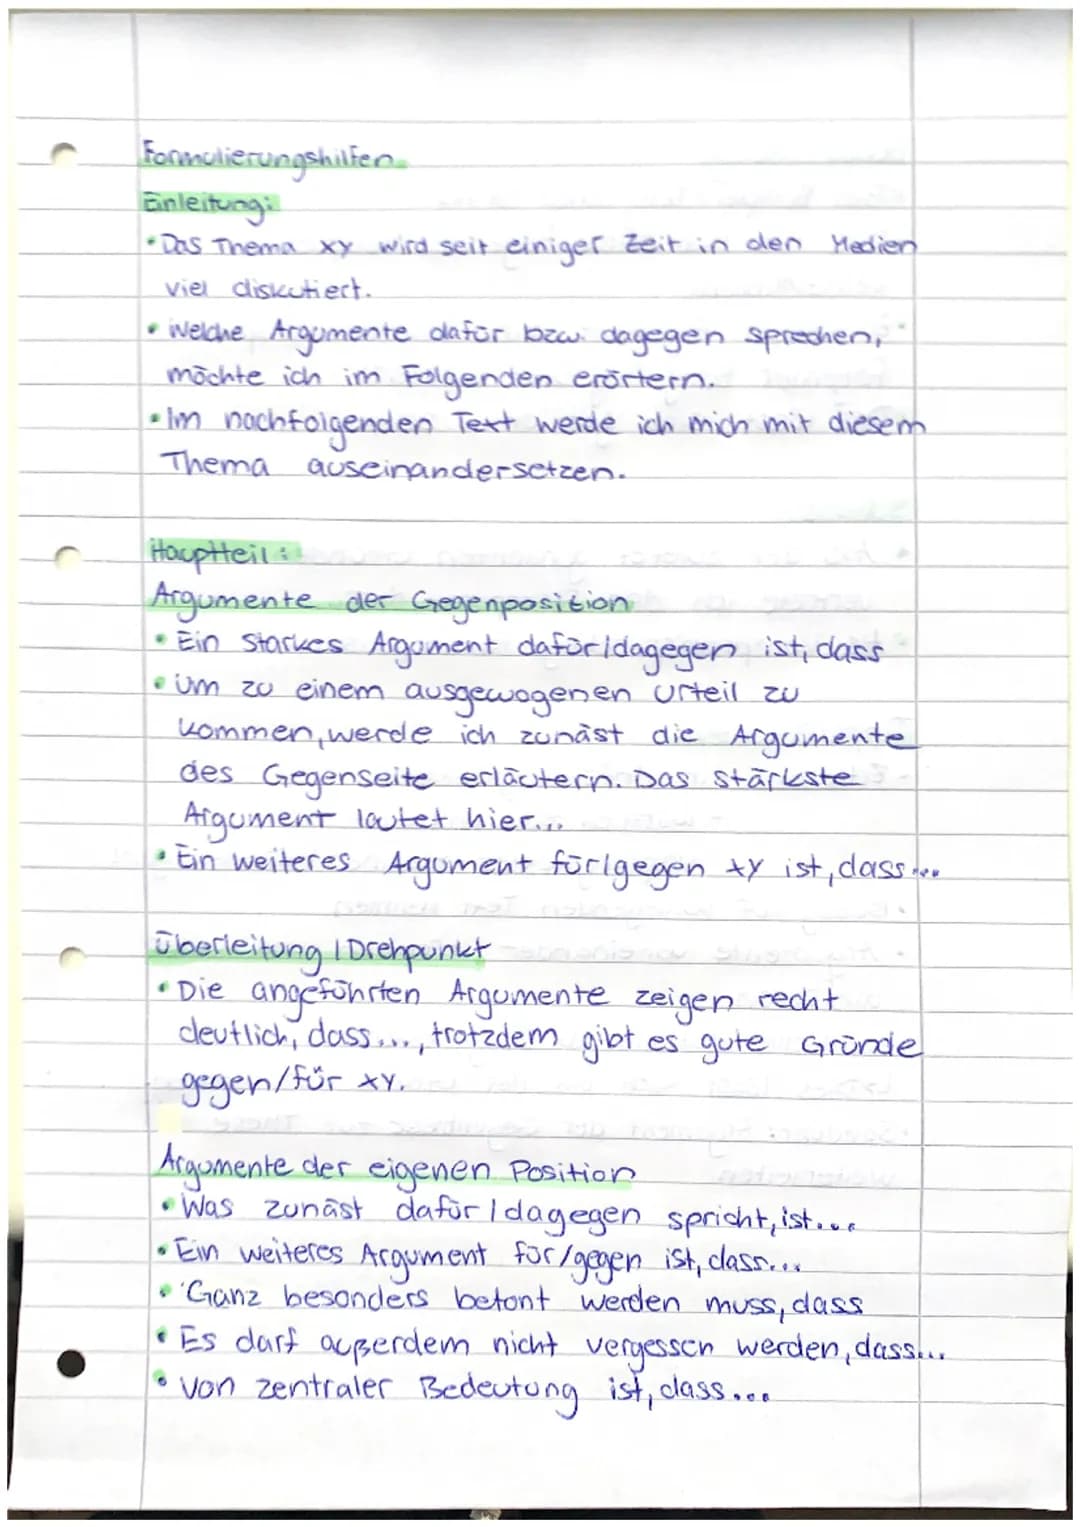 Formulierungshilfen
Einleitung:
• Das Thema xy wird seit einiger Zeit in den Medien
viel diskutiert.
• Welche Argumente dafür bzw. dagegen sprechen,
möchte ich im Folgenden erörtern.
• Im nachfolgenden Text werde ich mich mit diesem
Thema auseinandersetzen.
Hauptteil:
Argumente der Gegenposition
• Ein starkes Argument dafür/dagegen ist, dass
• Um zu einem ausgewogenen Urteil zu
kommen, werde ich zunäst die Argumente
des Gegenseite erläutern. Das stärkste
Argument lautet hier...
• Ein weiteres Argument für/gegen xy ist, dass...
Überleitung / Drehpunkt
• Die angeführten Argumente zeigen recht
deutlich, dass..., trotzdem gibt es gute Gründe
gegen/für xy.
Argumente der eigenen Position
• Was zunäst dafür / dagegen spricht, ist...
• Ein weiteres Argument für/gegen ist, dass...
• Ganz besonders betont werden muss, dass
• Es darf außerdem nicht vergessen werden, dass...
• Von zentraler Bedeutung ist, dass...